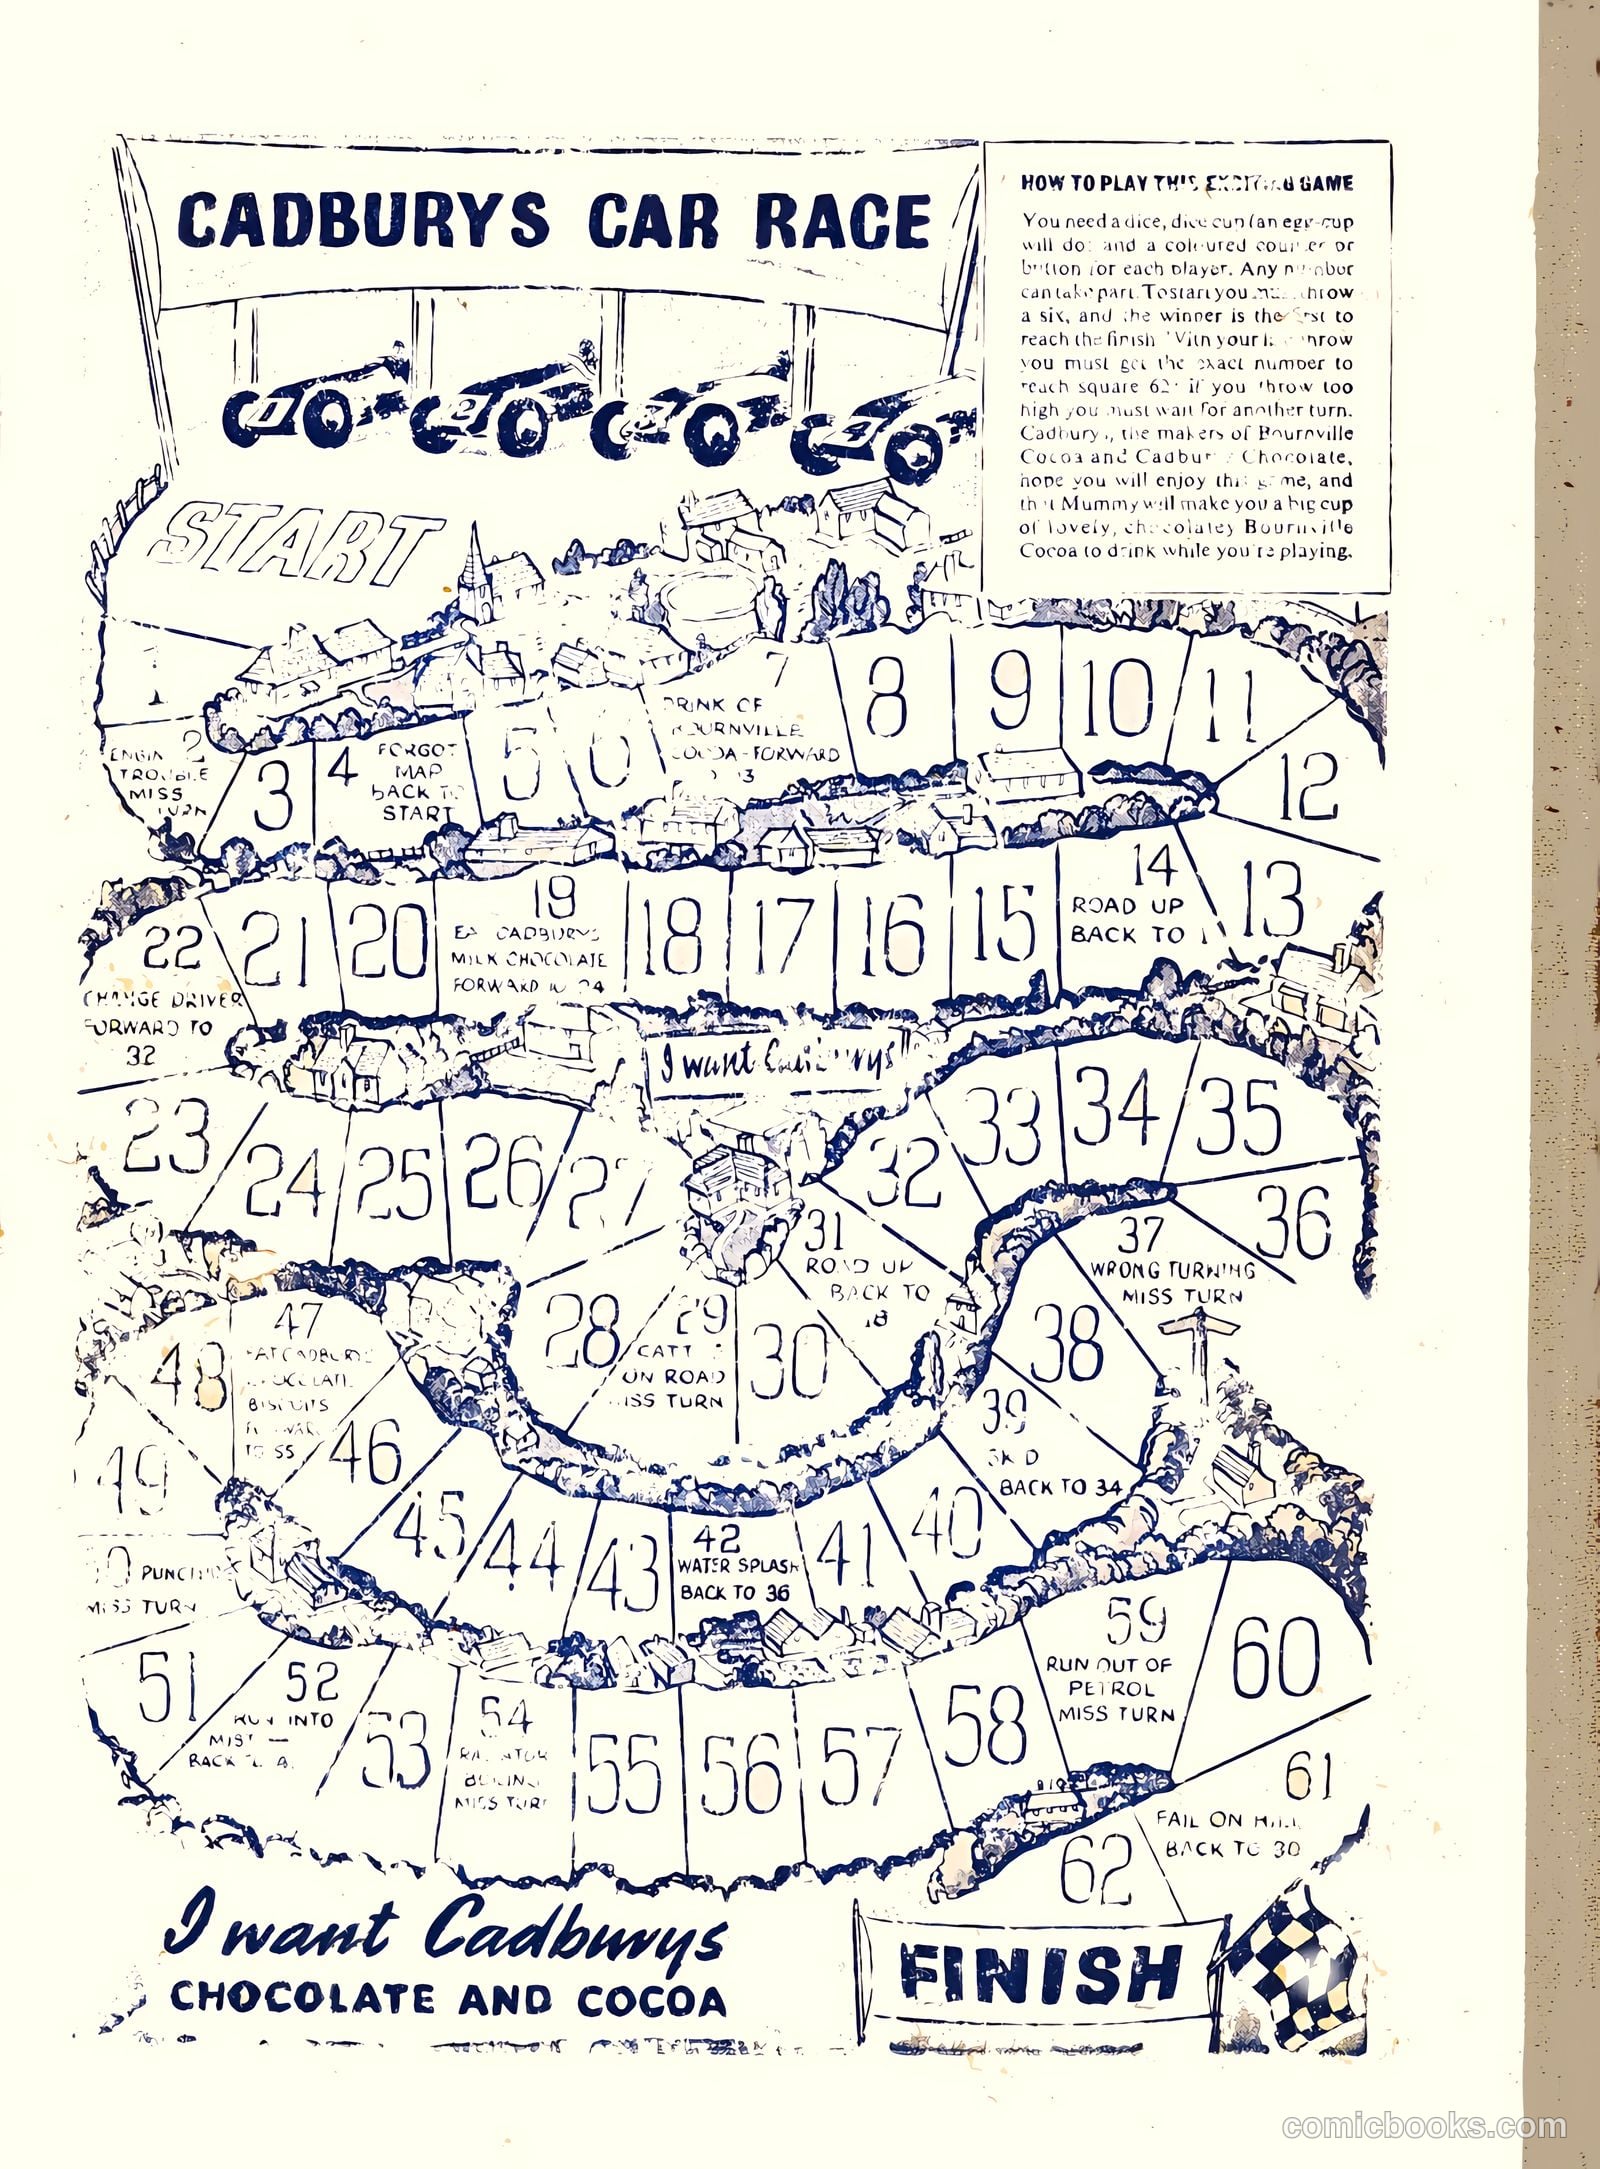 CADBURYS CAR RACE
HOW TO PLAY THIS EXCITING GAME
You need a dice, dice cup (an egg-cup
will do) and a coloured counter or
button for each player. Any number
can take part. To start you must throw
a six, and the winner is the first to
reach the finish. With your last throw
you must get the exact number to
reach square 62: if you throw too
high you must wait for another turn.
Cadburys, the makers of Bournville
Cocoa and Cadburys Chocolate,
hope you will enjoy this game, and
that Mummy will make you a big cup
of lovely, chocolatey Bournville
Cocoa to drink while you're playing.
START
1
2
ENGINE
TROUBLE
MISS
TURN
3
4
FORGOT
MAP
BACK TO
START
5
6
7
DRINK OF
BOURNVILLE
COCOA-FORWARD
8
9
10
11
12
13
14
ROAD UP
BACK TO
15
16
17
18
19
EAT CADBURYS
MILK CHOCOLATE
FORWARD TO 24
20
21
22
CHANGE DRIVER
FORWARD TO
32
I want Cadburys
23
24
25
26
27
28
29
CATTLE
ON ROAD
MISS TURN
30
31
ROAD UP
BACK TO
18
32
33
34
35
36
37
WRONG TURNING
MISS TURN
38
39
SKID
BACK TO 34
40
41
42
WATER SPLASH
BACK TO 36
43
44
45
46
47
EAT CADBURYS
CHOCOLATE
BISCUITS
FORWARD
TO 55
48
49
50 PUNCTURE
MISS TURN
51
52
RUN INTO
MIST —
BACK TO
53
54
RADIATOR
BOILING
MISS TURN
55
56
57
58
59
RUN OUT OF
PETROL
MISS TURN
60
61
FAIL ON HILL
BACK TO 30
62
I want Cadburys
CHOCOLATE AND COCOA
FINISH
comicbooks.com